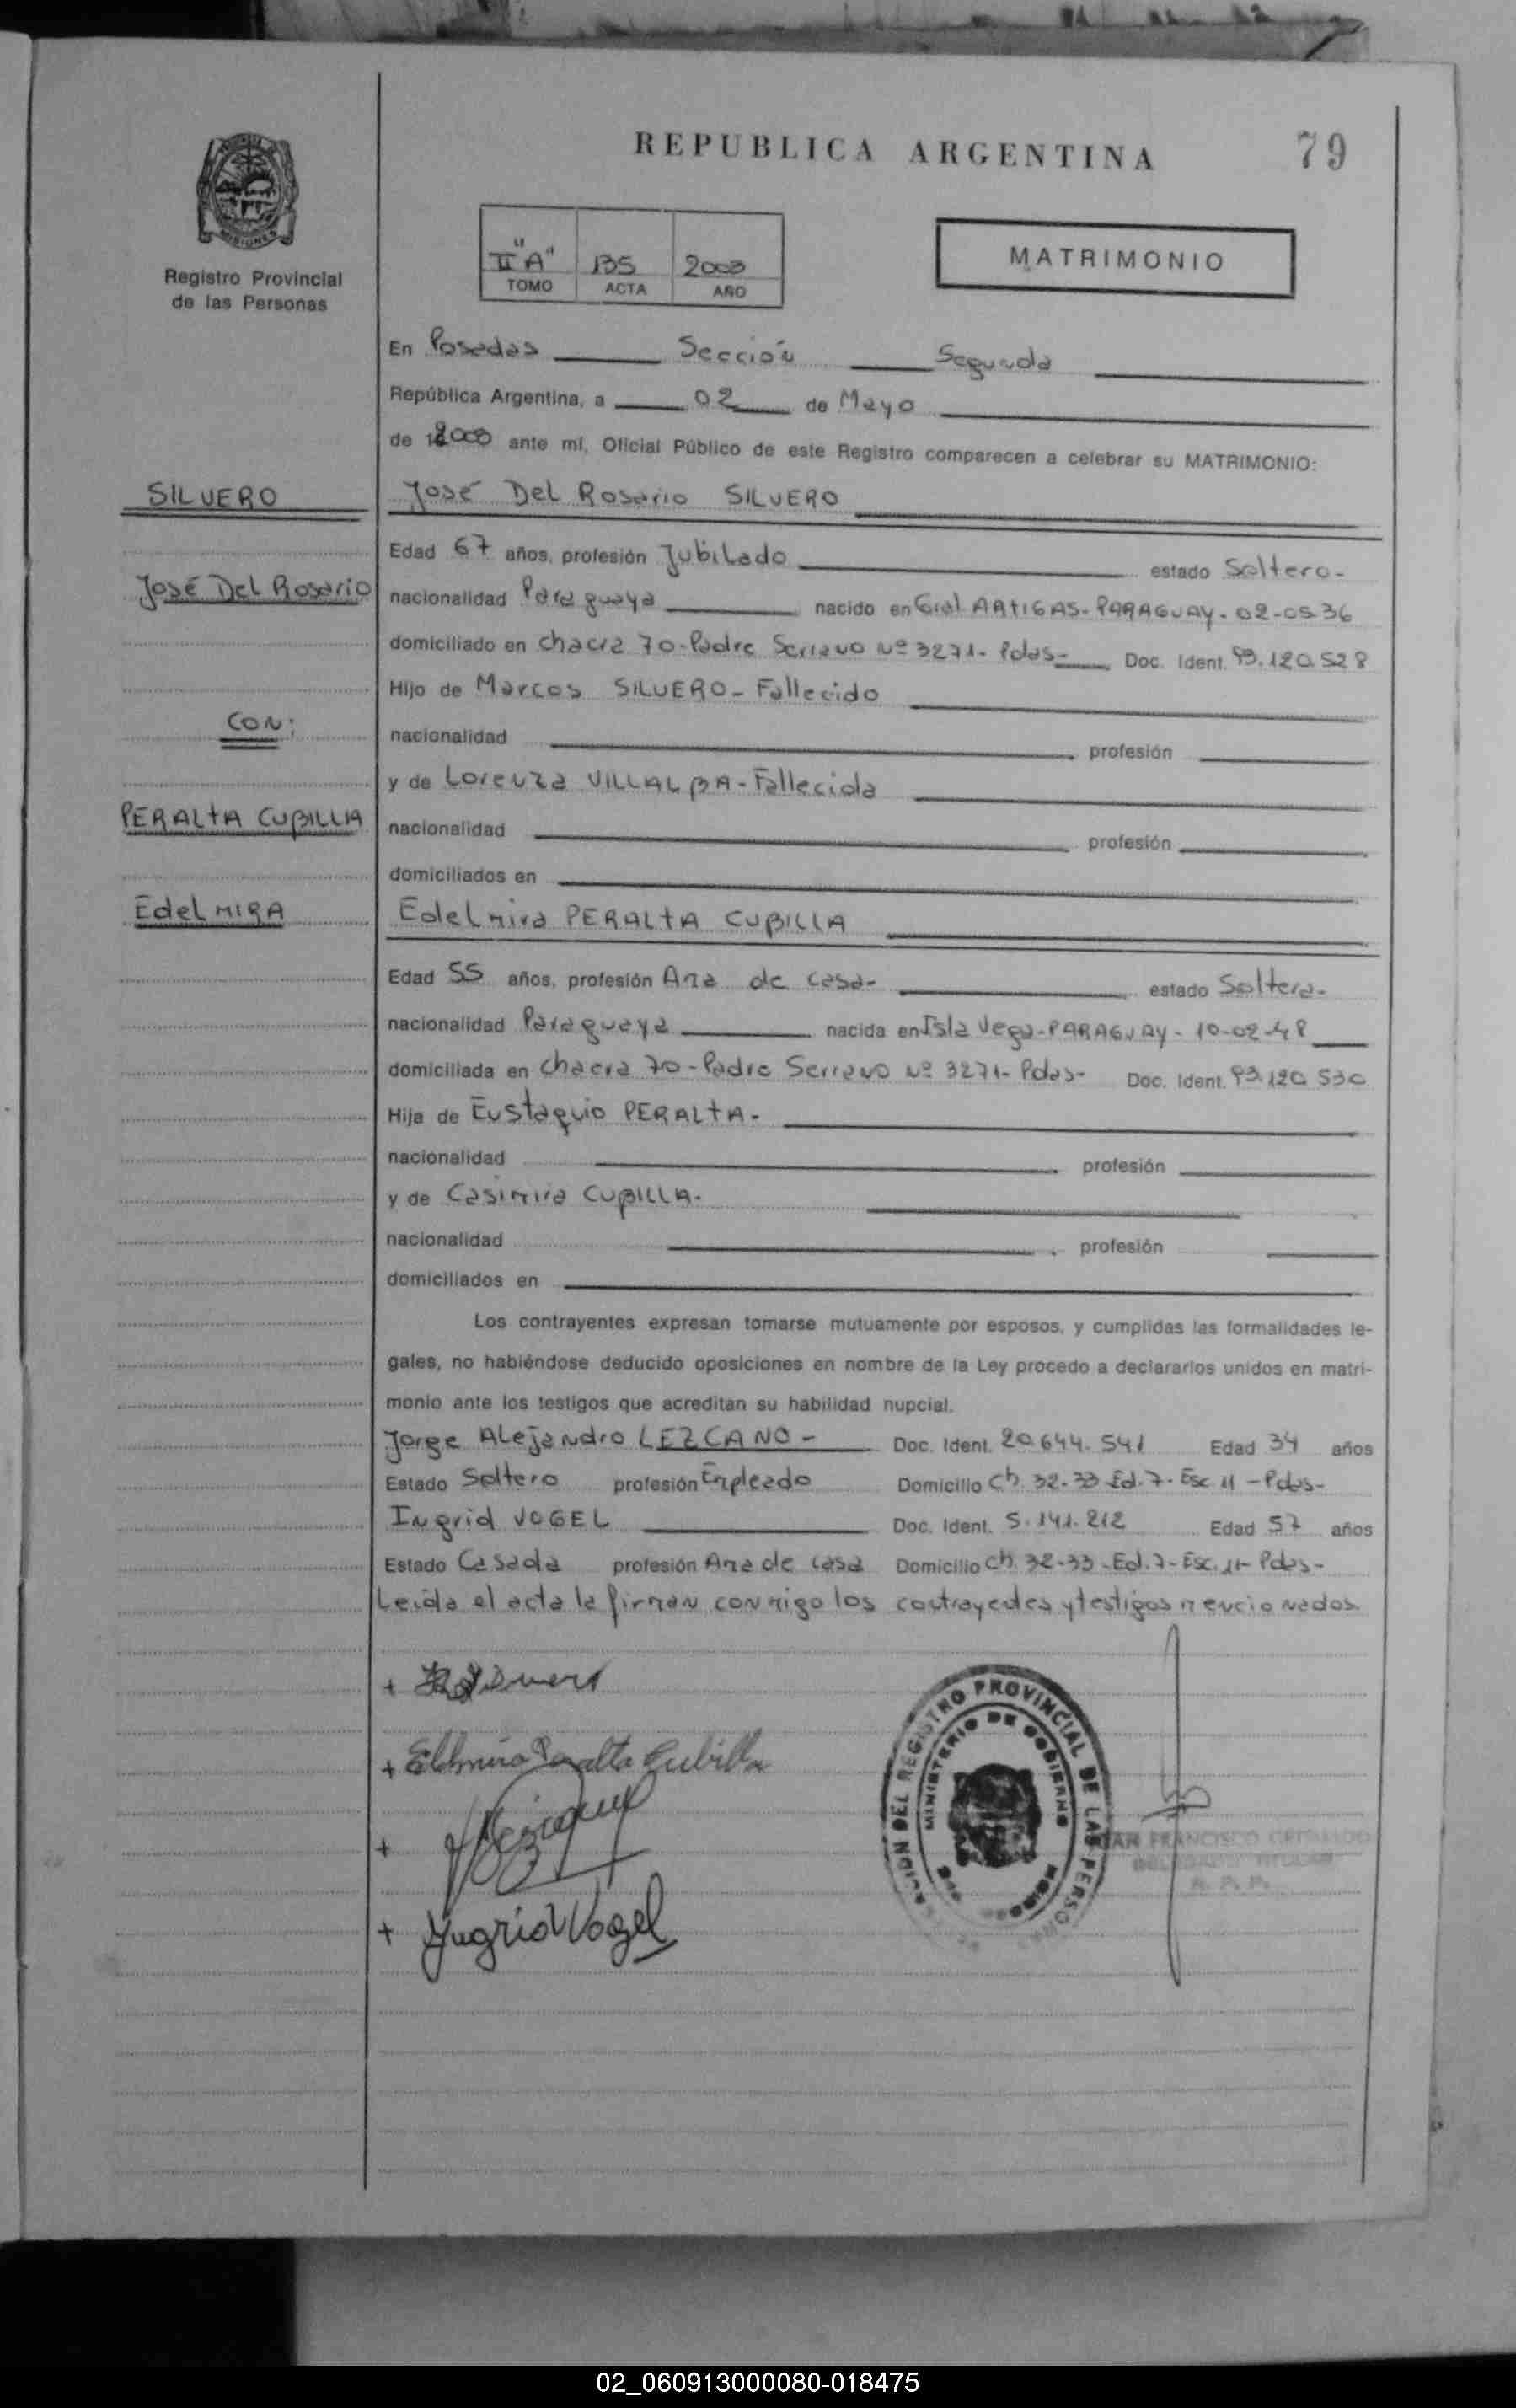 REPUBLICA ARGENTINA
79
MISIONES
Registro Provincial
de las Personas
II "A" 135 2003
TOMO ACTA AÑO
MATRIMONIO
En Posadas Sección Segunda
República Argentina, a 02 de Mayo
de 2003 ante mí, Oficial Público de este Registro comparecen a celebrar su MATRIMONIO:
SILVERO
José Del Rosario SILVERO
Edad 67 años, profesión Jubilado estado Soltero-
José Del Rosario
nacionalidad Paraguaya nacido en Gral ARTIGAS-PARAGUAY-02-05-36
domiciliado en chacra 70-Padre Serrano Nº 3271- Pdas- Doc. Ident. 93.120.528
Hijo de Marcos SILVERO-Fallecido
CON:
nacionalidad profesión
y de Lorenza VILLALBA-Fallecida
PERALTA CUBILLA
nacionalidad profesión
domiciliados en
EdelMIRA
Edelmira PERALTA CUBILLA
Edad 55 años, profesión Ama de casa- estado Soltera-
nacionalidad Paraguaya nacida en Isla Vega-PARAGUAY-10-02-48
domiciliada en chacra 70-Padre Serrano Nº 3271-Pdas- Doc. Ident. 93.120.530
Hija de Eustaquio PERALTA-
nacionalidad profesión
y de Casimira CUBILLA-
nacionalidad profesión
domiciliados en
Los contrayentes expresan tomarse mutuamente por esposos, y cumplidas las formalidades le-
gales, no habiéndose deducido oposiciones en nombre de la Ley procedo a declararlos unidos en matri-
monio ante los testigos que acreditan su habilidad nupcial.
Jorge Alejandro LEZCANO- Doc. Ident. 20.644.541 Edad 34 años
Estado Soltero profesión Empleado Domicilio Ch. 32-33 Ed.7-Esc.11-Pdas-
Ingrid VOGEL Doc. Ident. 5.141.212 Edad 57 años
Estado Casada profesión Ama de casa Domicilio Ch. 32-33-Ed.7-Esc.11-Pdas-
Leída el acta la firman conmigo los contrayentes y testigos mencionados.
+ Silvero
+ Edelmira Peralta Cubilla
+
+ Ingrid Vogel
DEL REGISTRO PROVINCIAL DE LAS PERSONAS
MINISTERIO DE GOBIERNO
FRANCISCO
TITULAR
R. P. P.
02_060913000080-018475